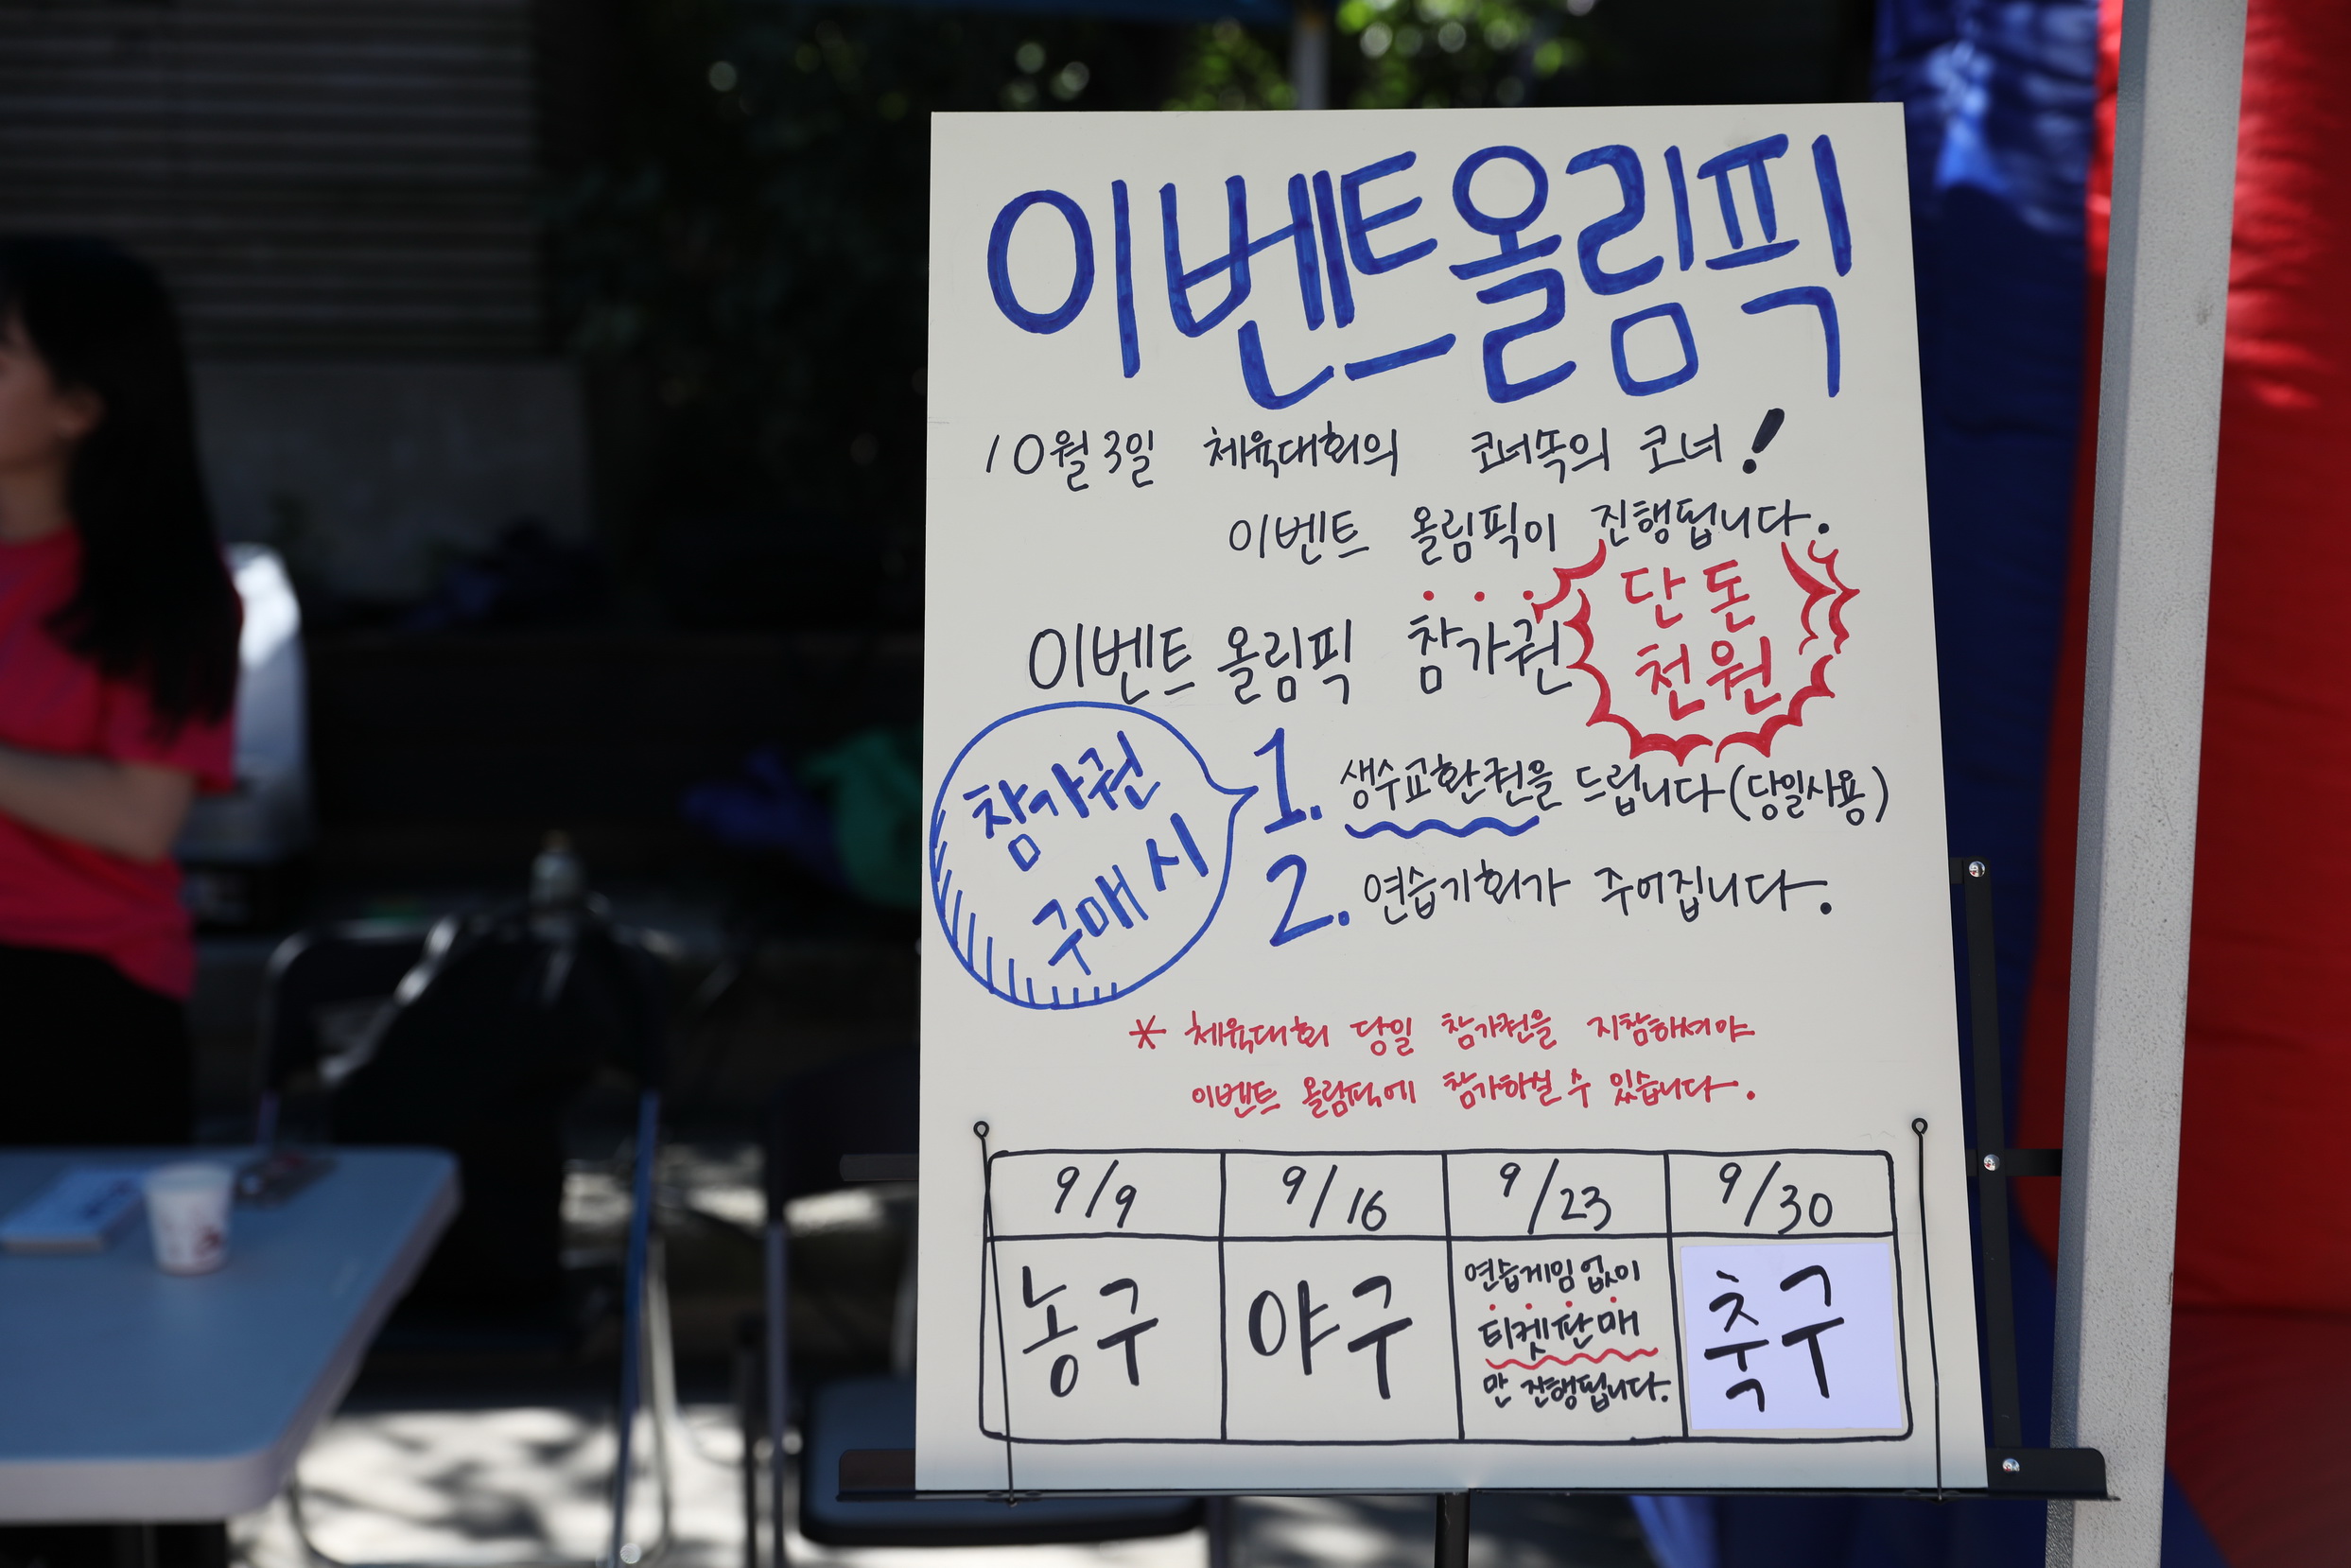 이벤트올림픽
10월 3일 체육대회의 코너속의 코너!
이벤트 올림픽이 진행됩니다.
이벤트 올림픽 참가권
단돈
천원
참가권
구매 시
1. 생수교환권을 드립니다 (당일사용)
2. 연습기회가 주어집니다.
* 체육대회 당일 참가권을 지참하셔야
이벤트 올림픽에 참가하실 수 있습니다.
9/9 9/16 9/23 9/30
농구 야구
연습게임 없이
티켓판매
만 진행됩니다.
축구